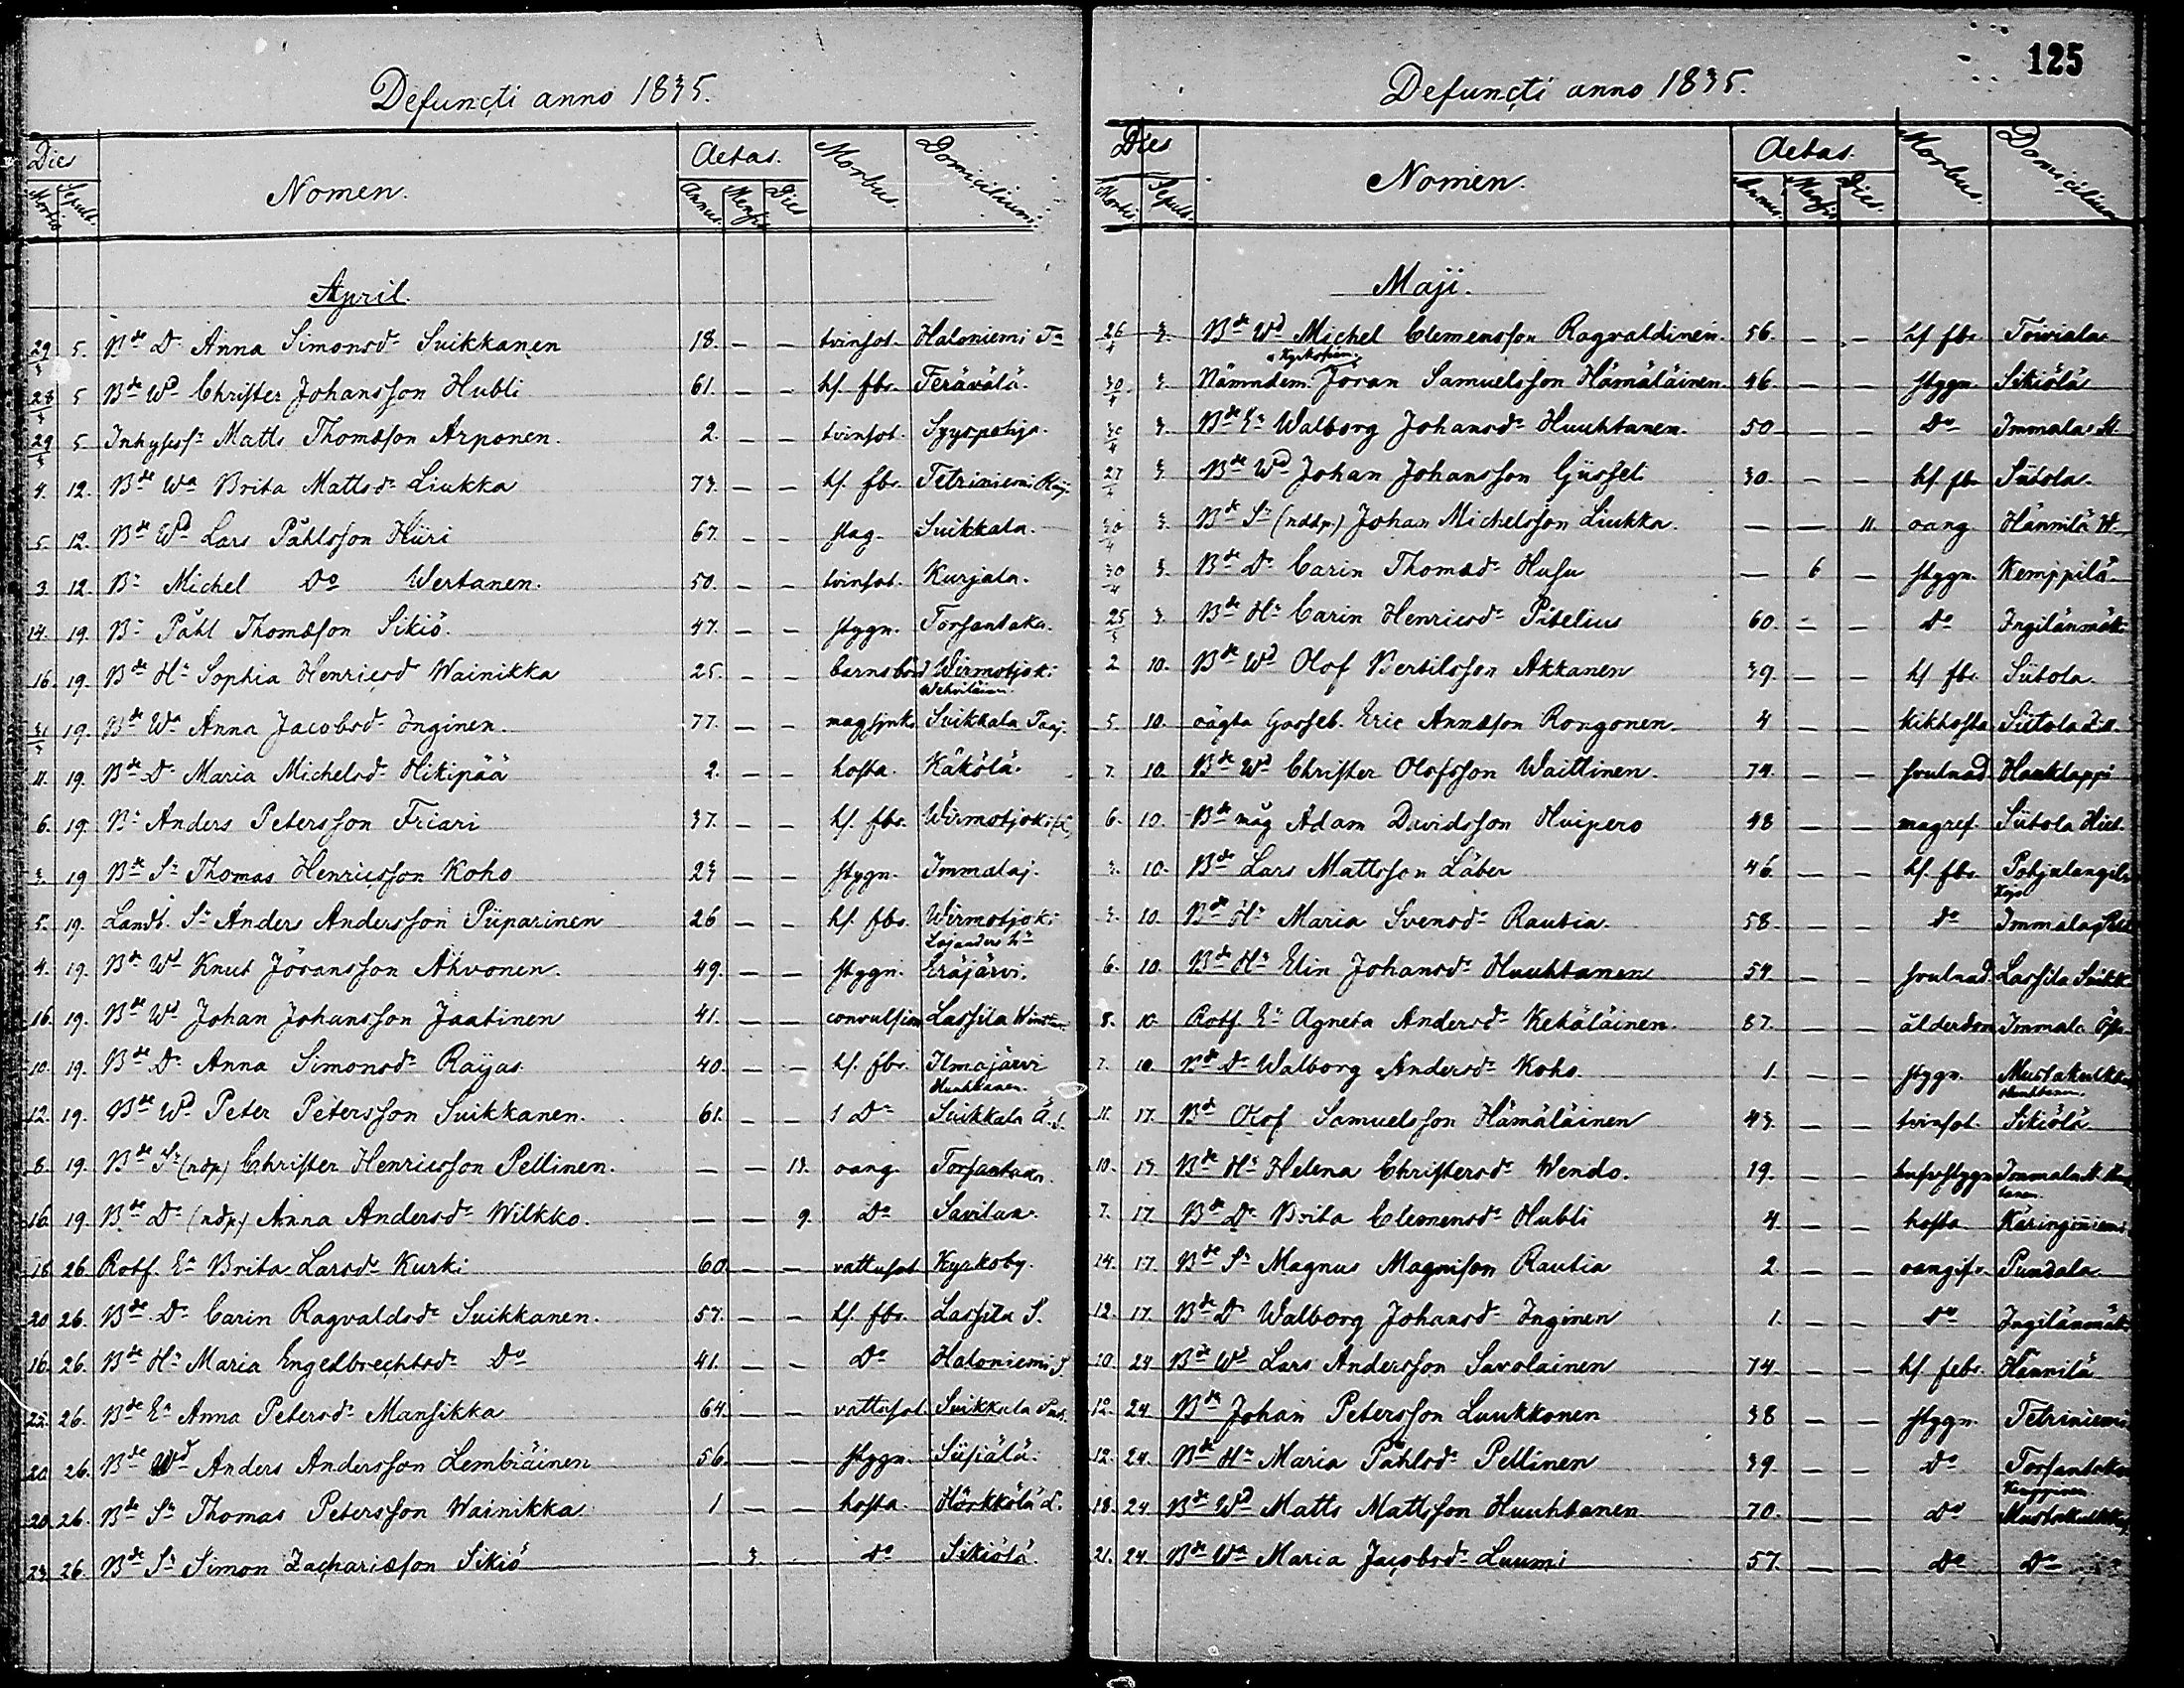 Defuncti anno 1835.
Dies Nomen. Aetas. Morbus. Domicilium.
Mortis Sepult. Annus. Mensis Dies
April.
29/3 5. Bde Dr Anna Simonsdr Suikkanen 18. — — tvinsot. Haloniemi
28/3 5 Bde Wd Christer Johansson Hubli 61. — — hf. fbr. Terävälä.
29/3 5 Inhyses Sn Matts Thomæson Arponen. 2. — — tvinsot. Syyspohja.
4. 12. Bde Wa Brita Mattsdr Liukka 73. — — hf. fbr. Tetriniemi
5. 12. Bde Wd Lars Påhlsson Hiiri 67. — — slag. Suikkala.
3. 12. Bn Michel Do Wertanen. 50. — — tvinsot. Kurjala.
14. 19. Bn Påhl Thomæson Sikiö. 47. — — stygn. Torsantaka.
16. 19. Bde Hu Sophia Henricsdr Wainikka 25. — — barnsbörd Wirmotjoki
31/3 19. Bde Wa Anna Jacobsdr Inginen. 77. — — magsjuk. Suikkala
11. 19. Bde Dr Maria Michelsdr Hikipää 2. — — hosta. Käkölä.
6. 19. Bn Anders Petersson Friari 37. — — hf. fbr. Wirmotjoki
3. 19 Bde Sn Thomas Henricsson Koho 23 — — stygn. Immalaj.
5. 19. Landb. Sn Anders Andersson Piiparinen 26 — — hf. fbr. Wirmotjoki
4. 19. Bde Wd Knut Jöransson Ahvonen. 49. — — stygn. Eräjärvi.
16. 19. Bde Wd Johan Johansson Jaatinen 41. — — convulsion Lassila
10. 19. Bde Dr Anna Simonsdr Raijas 40. — — hf. fbr. Ilmajärvi
Huuhtanen.
12. 19. Bde Wd Peter Petersson Suikkanen. 61. — — Do Suikkala
8. 19. Bde Sn (ndp) Christer Henricsson Pellinen. — — 13. oang. Torsantaka.
16. 19. Bde Dr (ndp) Anna Andersdr Wilkko. — — 9. Do Savilax.
18 26. Rotf. Ea Brita Larsdr Kurki 60. — — vattusot Kyrkoby.
20 26. Bde Dr Carin Ragvaldsdr Suikkanen. 57. — — hf. fbr. Lassila S.
16. 26. Bde Hu Maria Engelbrechtsdr Do 41. — — Do Haloniemi S.
22. 26. Bde Ea Anna Petersdr Mansikka 64. — — vattusot. Suikkala
20 26. Bde Wd Anders Andersson Lembiäinen 56. — — stygn. Siisiälä.
20 26. Bde Sn Thomas Petersson Wainikka 1 — — hosta. Härkkölä
23 26. Bde Sn Simon Zachariæson Sikiö — 3. Do Sikiölä.
125
Defuncti anno 1835.
Dies Nomen. Aetas. Morbus. Domicilium
Mortis. Sepult. Annus. Mensis Dies.
Maji.
26/4 3. Bde Wd Michel Clemensson Ragvaldinen. 56. — — hf fbr. Toiviala
30/4 3. Nämndem. Jöran Samuelsson Hämäläinen. 46. — — stygn. Sikiölä
30/4 3. Bde Ea Walborg Johansdr Huuhtanen. 50 — — Do Immala
27/4 3. Bde Wd Johan Johansson Gusset 30. — — hf. fbr Siitola.
30/4 3. Bde Sn (nddp.) Johan Michelsson Liukka. — — 11. oang. Hännilä
30/4 3. Bde Dr Carin Thomædr Husu — 6 — stygn. Kemppilä.
25/3 3. Bde Hu Carin Henricsdr Pitelius 60. — — Do Ingilänmäki
2 10. Bde Wd Olof Bertilsson Akkanen 39. — — hf fbr. Siitola.
5. 10. oägta Gosseb. Eric Annæson Rongonen. 4 — — kikhosta Siitola
7. 10. Bde Wd Christer Olofsson Waittinen. 74. — — svulnad. Hauklappi
6. 10. Bde måg Adam Davidsson Huipero 48 — — magref. Siitola
3. 10. Bde Lars Mattsson Läber 46. — — hf. fbr. Pohjalangila
3. 10. Bde Hu Maria Svensdr Rautia. 58. — — Do Immalaj.
6. 10. Bde Hu Elin Johansdr Huuhtanen 54 — — svulnad. Lassila Suikk
8. 10. Rotf. Ea Agneta Andersdr Kekäläinen. 87. — — ålderdom Immala
7. 10. Bde Dr Walborg Andersdr Koho. 1. — — stygn. Mustakulkku
Huuhtanen.
11. 17. Bde Olof Samuelsson Hämäläinen 43. — — tvinsot. Sikiölä
10. 17. Bde Hu Helena Christersdr Wendo. 19. — — Immala
7. 17. Bde Dr Brita Clemensdr Hubli 4. — — hosta Käringiniemi
14. 17. Bde Sn Magnus Magnison Rautia 2. — — oangifv. Pundala
12. 17. Bde Dr Walborg Johansdr Inginen 1. — — Do Ingilänmäki
10 24 Bde Wd Lars Andersson Savolainen 74. — — hf febr. Hännilä
12. 24. Bde Johan Petersson Luukkonen 38 — — stygn. Tetriniemi
12. 24. Bde Hu Maria Påhlsdr Pellinen 39. — — Do Torsantaka
18. 24. Bde Wd Matts Mattsson Huuhtanen. 70. — — Do Mustakulkku
21. 24. Bde Wa Maria Jacobsdr Luumi 57. — — Do Do